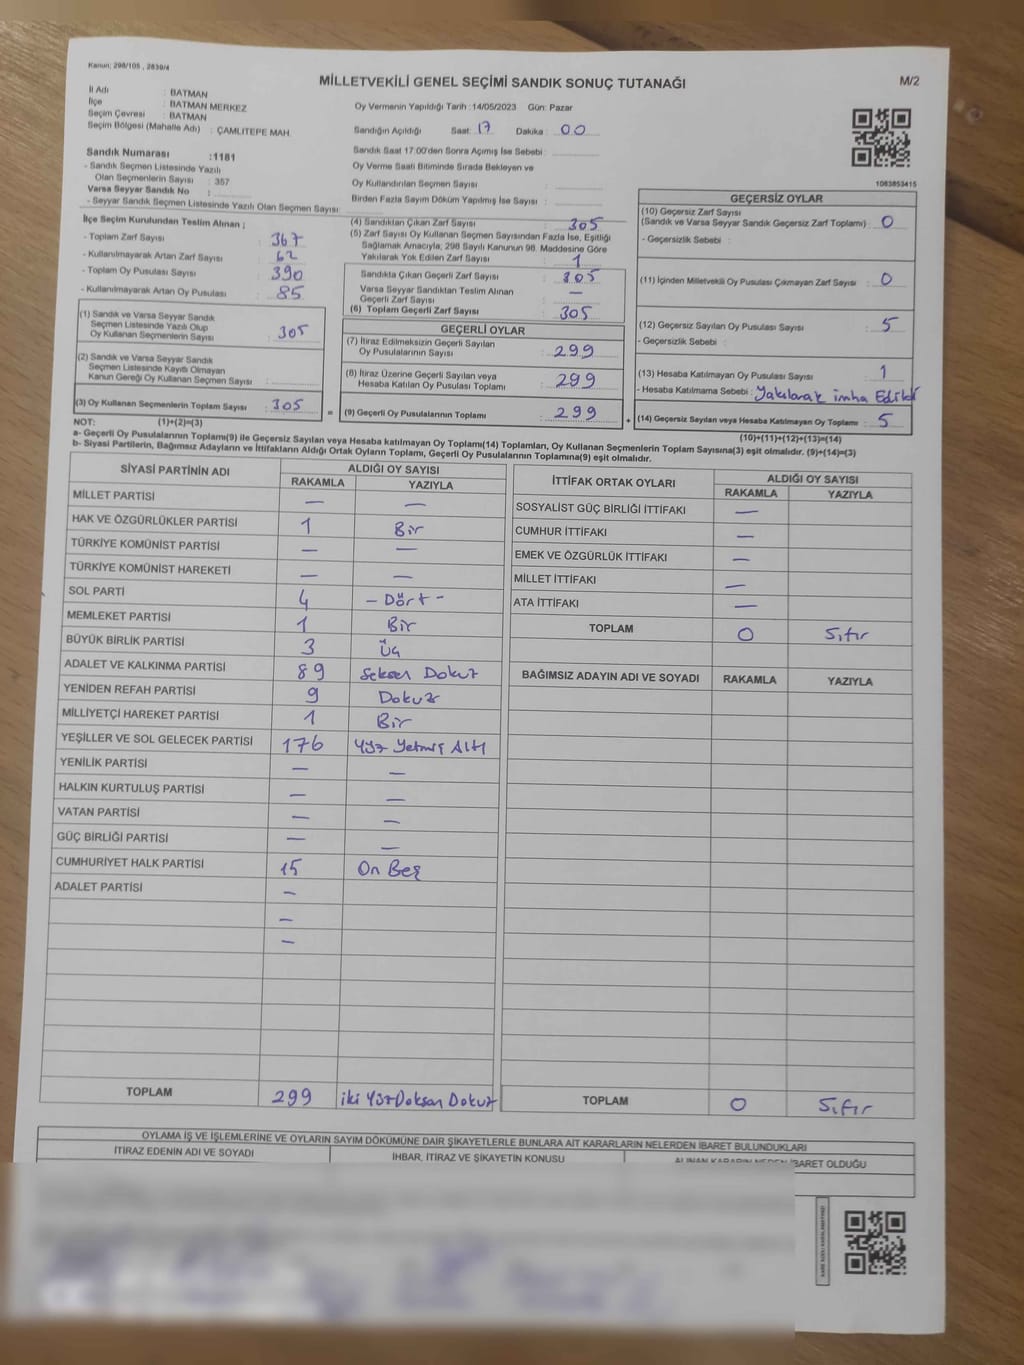 Kanun: 298/105 , 2839/4
MİLLETVEKİLİ GENEL SEÇİMİ SANDIK SONUÇ TUTANAĞI
M/2
İl Adı : BATMAN
İlçe : BATMAN MERKEZ
Seçim Çevresi : BATMAN
Seçim Bölgesi (Mahalle Adı) : ÇAMLITEPE MAH.
Sandık Numarası :1181
- Sandık Seçmen Listesinde Yazılı
Olan Seçmenlerin Sayısı : 357
Varsa Seyyar Sandık No :
- Seyyar Sandık Seçmen Listesinde Yazılı Olan Seçmen Sayısı:
Oy Vermenin Yapıldığı Tarih :14/05/2023 Gün: Pazar
Sandığın Açıldığı Saat: 17 Dakika : 00
Sandık Saat 17:00'den Sonra Açımış İse Sebebi :
Oy Verme Saati Bitiminde Sırada Bekleyen ve
Oy Kullandırılan Seçmen Sayısı :
Birden Fazla Sayım Döküm Yapılmış İse Sayısı :
1083853415
İlçe Seçim Kurulundan Teslim Alınan ;
- Toplam Zarf Sayısı : 367
- Kullanılmayarak Artan Zarf Sayısı : 62
- Toplam Oy Pusulası Sayısı : 390
- Kullanılmayarak Artan Oy Pusulası : 85
(1) Sandık ve Varsa Seyyar Sandık
Seçmen Listesinde Yazılı Olup
Oy Kullanan Seçmenlerin Sayısı : 305
(2) Sandık ve Varsa Seyyar Sandık
Seçmen Listesinde Kayıtlı Olmayan
Kanun Gereği Oy Kullanan Seçmen Sayısı :
(3) Oy Kullanan Seçmenlerin Toplam Sayısı : 305
(1)+(2)=(3)
(4) Sandıktan Çıkan Zarf Sayısı : 305
(5) Zarf Sayısı Oy Kullanan Seçmen Sayısından Fazla İse, Eşitliği
Sağlamak Amacıyla, 298 Sayılı Kanunun 98. Maddesine Göre
Yakılarak Yok Edilen Zarf Sayısı : 1
Sandıkta Çıkan Geçerli Zarf Sayısı : 305
Varsa Seyyar Sandıktan Teslim Alınan
Geçerli Zarf Sayısı : —
(6) Toplam Geçerli Zarf Sayısı : 305
GEÇERLİ OYLAR
(7) İtiraz Edilmeksizin Geçerli Sayılan
Oy Pusulalarının Sayısı : 299
(8) İtiraz Üzerine Geçerli Sayılan veya
Hesaba Katılan Oy Pusulası Toplamı : 299
= (9) Geçerli Oy Pusulalarının Toplamı : 299 +
GEÇERSİZ OYLAR
(10) Geçersiz Zarf Sayısı
(Sandık ve Varsa Seyyar Sandık Geçersiz Zarf Toplamı) : 0
- Geçersizlik Sebebi :
(11) İçinden Milletvekili Oy Pusulası Çıkmayan Zarf Sayısı : 0
(12) Geçersiz Sayılan Oy Pusulası Sayısı : 5
- Geçersizlik Sebebi :
(13) Hesaba Katılmayan Oy Pusulası Sayısı : 1
- Hesaba Katılmama Sebebi : Yakılarak imha Edildi
(14) Geçersiz Sayılan veya Hesaba Katılmayan Oy Toplamı : 5
(10)+(11)+(12)+(13)=(14)
NOT:
a- Geçerli Oy Pusulalarının Toplamı(9) ile Geçersiz Sayılan veya Hesaba katılmayan Oy Toplamı(14) Toplamları, Oy Kullanan Seçmenlerin Toplam Sayısına(3) eşit olmalıdır. (9)+(14)=(3)
b- Siyasi Partilerin, Bağımsız Adayların ve İttifakların Aldığı Ortak Oyların Toplamı, Geçerli Oy Pusulalarının Toplamına(9) eşit olmalıdır.
SİYASİ PARTİNİN ADI ALDIĞI OY SAYISI
RAKAMLA YAZIYLA
MİLLET PARTİSİ — —
HAK VE ÖZGÜRLÜKLER PARTİSİ 1 Bir
TÜRKİYE KOMÜNİST PARTİSİ — —
TÜRKİYE KOMÜNİST HAREKETİ — —
SOL PARTİ 4 - Dört -
MEMLEKET PARTİSİ 1 Bir
BÜYÜK BİRLİK PARTİSİ 3 Üç
ADALET VE KALKINMA PARTİSİ 89 Seksen Dokuz
YENİDEN REFAH PARTİSİ 9 Dokuz
MİLLİYETÇİ HAREKET PARTİSİ 1 Bir
YEŞİLLER VE SOL GELECEK PARTİSİ 176 Yüz Yetmiş Altı
YENİLİK PARTİSİ — —
HALKIN KURTULUŞ PARTİSİ — —
VATAN PARTİSİ — —
GÜÇ BİRLİĞİ PARTİSİ — —
CUMHURİYET HALK PARTİSİ 15 On Beş
ADALET PARTİSİ —
—
—
TOPLAM 299 iki Yüz Doksan Dokuz
İTTİFAK ORTAK OYLARI ALDIĞI OY SAYISI
RAKAMLA YAZIYLA
SOSYALİST GÜÇ BİRLİĞİ İTTİFAKI —
CUMHUR İTTİFAKI —
EMEK VE ÖZGÜRLÜK İTTİFAKI —
MİLLET İTTİFAKI —
ATA İTTİFAKI —
TOPLAM 0 Sıfır
BAĞIMSIZ ADAYIN ADI VE SOYADI RAKAMLA YAZIYLA
TOPLAM 0 Sıfır
OYLAMA İŞ VE İŞLEMLERİNE VE OYLARIN SAYIM DÖKÜMÜNE DAİR ŞİKAYETLERLE BUNLARA AİT KARARLARIN NELERDEN İBARET BULUNDUKLARI
İTİRAZ EDENİN ADI VE SOYADI İHBAR, İTİRAZ VE ŞİKAYETİN KONUSU ALINAN KARARIN NEDEN İBARET OLDUĞU